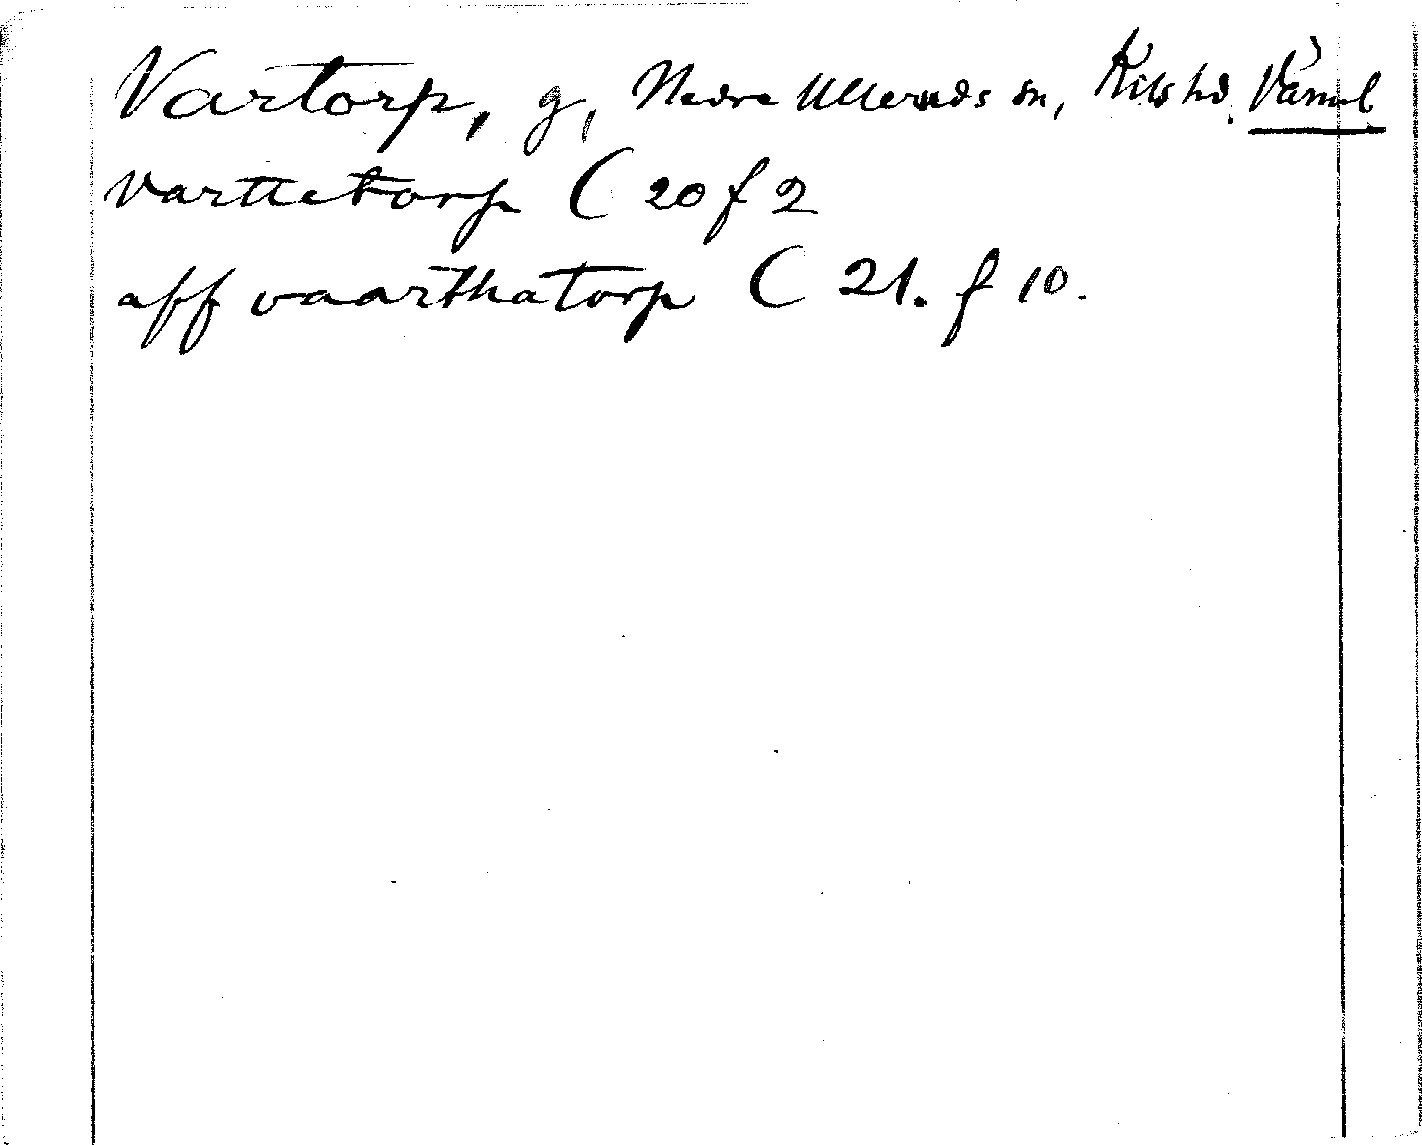 Vartorp, g, Nedre Ulleruds sn, Kils hd. Värml
varttetorp C 20 f 2
aff vaarthatorp C 21. f 10.